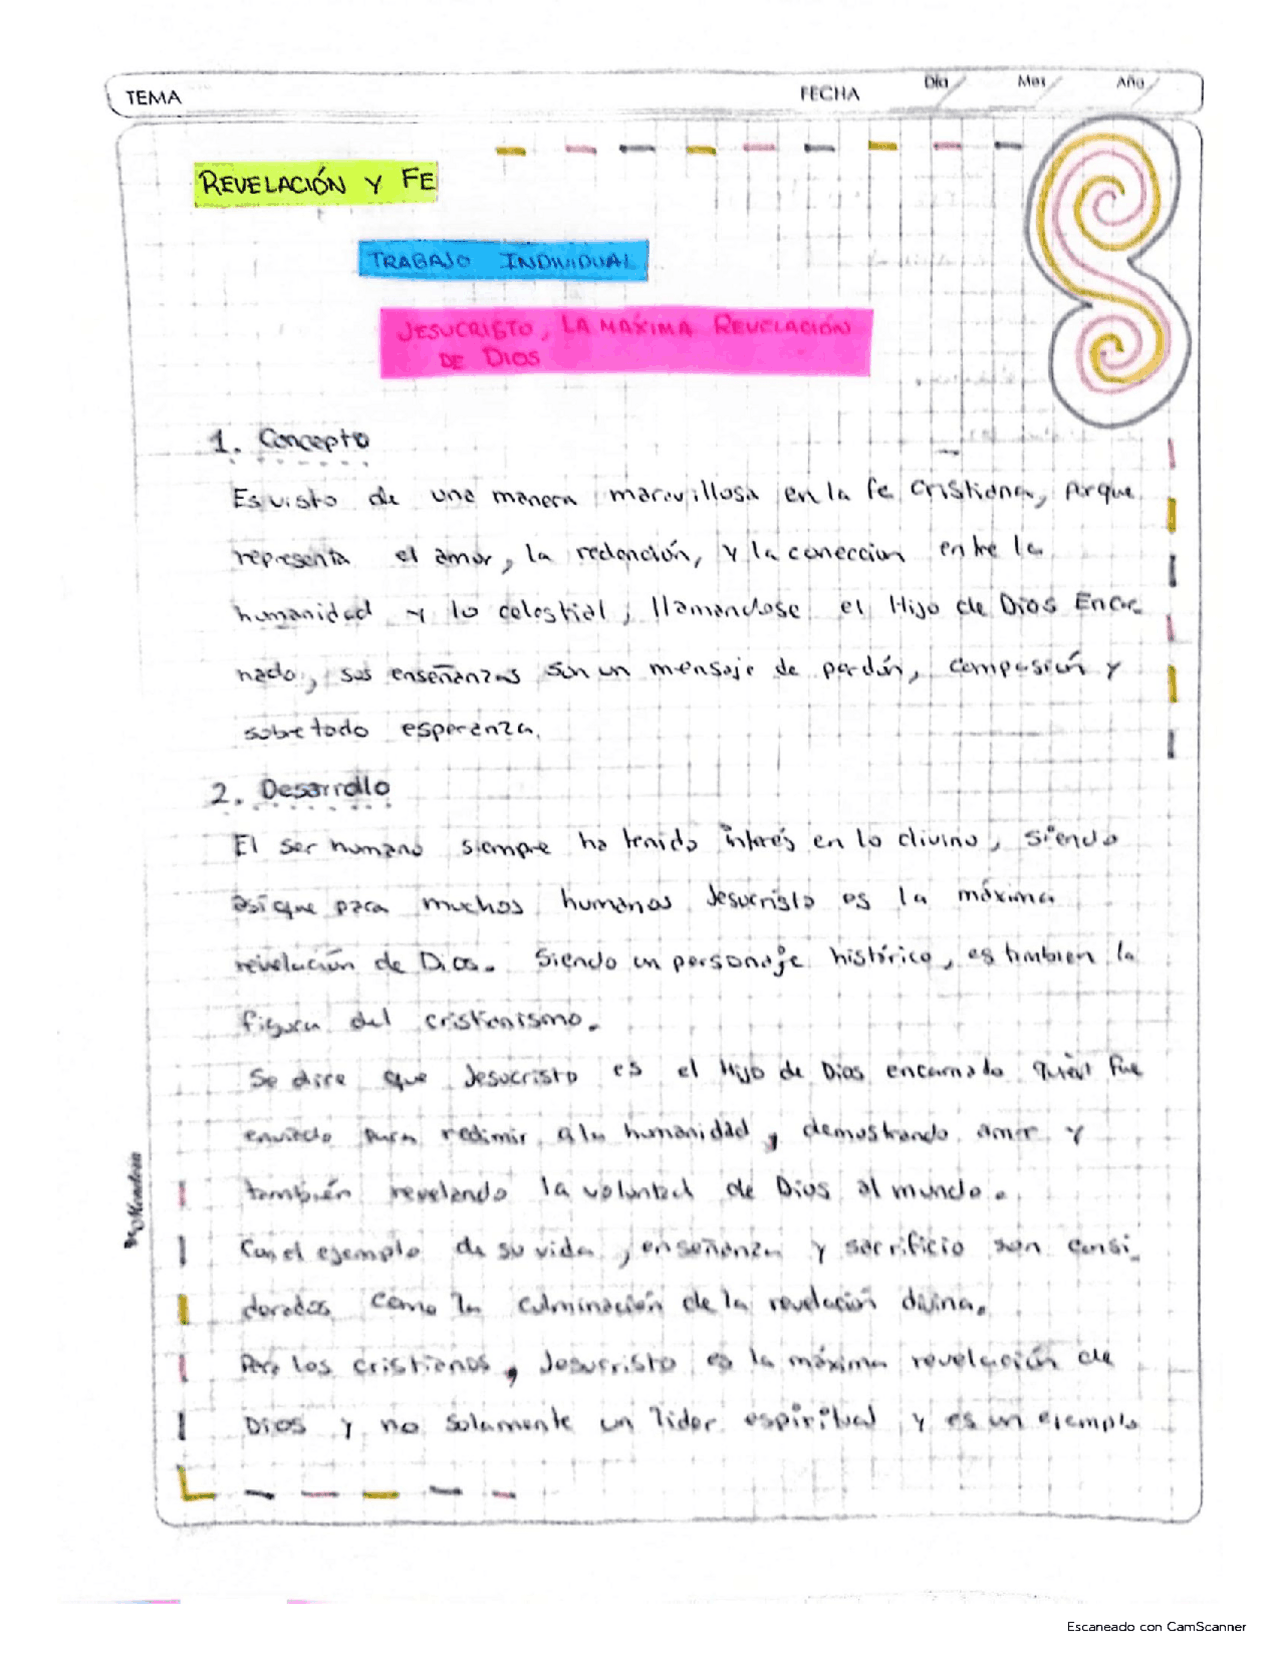 TEMA
FECHA Día Mes Año
REVELACIÓN Y FE
TRABAJO INDIVIDUAL
JESUCRISTO, LA MAXIMA REVELACIÓN
DE DIOS
1. Concepto
Es visto de una manera maravillosa en la fe cristiana, porque
representa el amor, la redención, y la coneccion entre la
humanidad y lo celestial, llamandose el Hijo de Dios Encar_
nado, sus enseñanzas son un mensaje de perdón, compasión y
sobre todo esperanza.
2. Desarrollo
El ser humano siempre ha tenido interés en lo divino, siendo
asi que para muchos humanos Jesucristo es la máxima
revelación de Dios. Siendo un personaje histórico, es tambien la
figura del cristianismo.
Se dice que Jesucristo es el Hijo de Dios encarnado quién fue
enviado para redimir a la humanidad, demostrando amor y
también revelando la voluntad de Dios al mundo.
Con el ejemplo de su vida, enseñanza y sacrificio son consi_
derados como la culminación de la revelación divina.
Para los cristianos, Jesucristo es la máxima revelación de
Dios y no solamente un lider espiritual y es un ejemplo
Escaneado con CamScanner